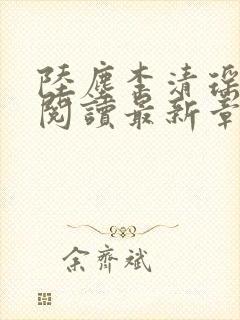 陸塵李清瑶
閱讀最新章
余齊斌